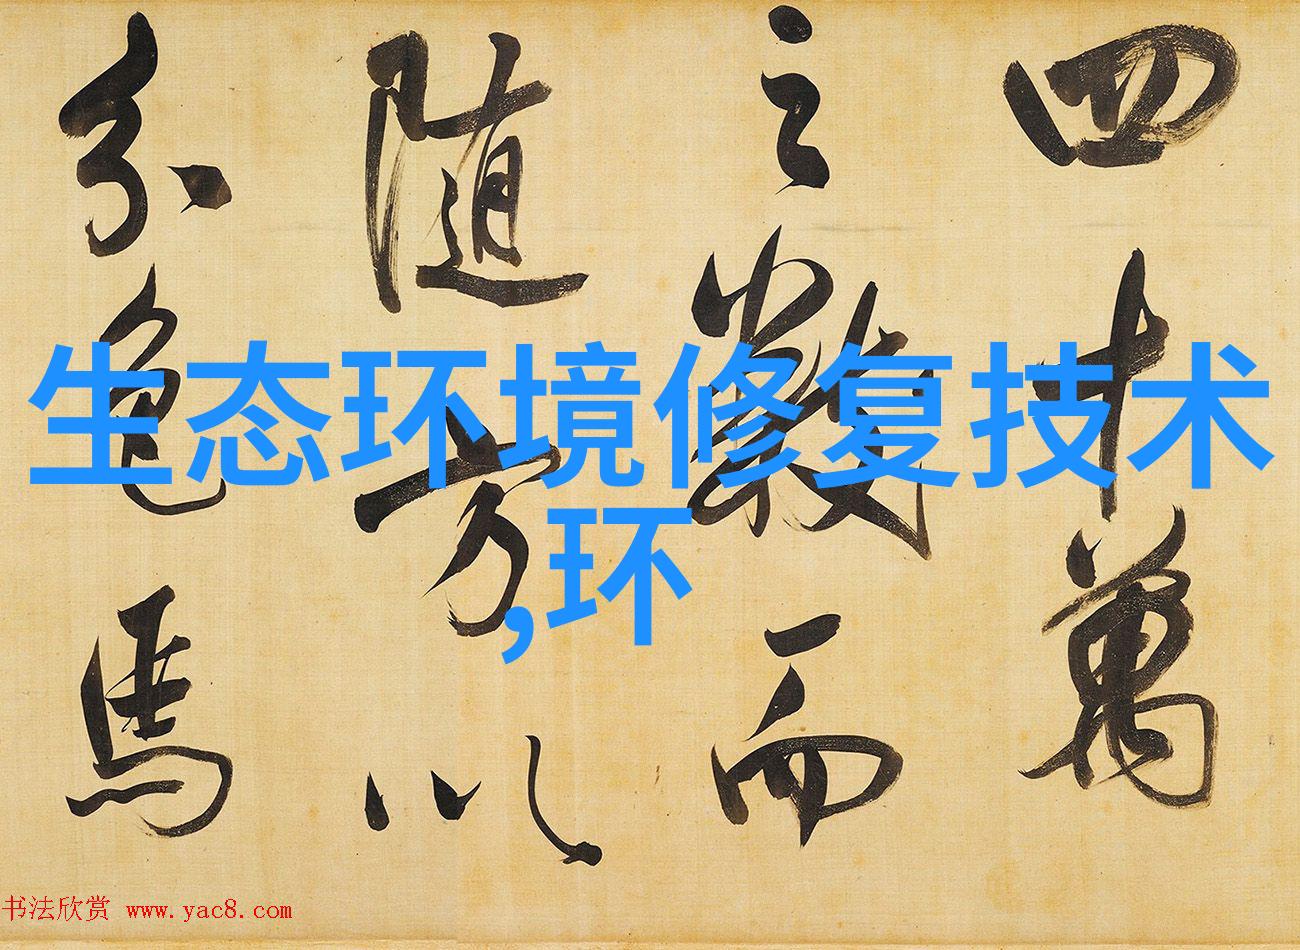 四十萬
之數而
隨方以
分色馬
生态环境修复技术
,环
书法欣赏 www.yac8.com